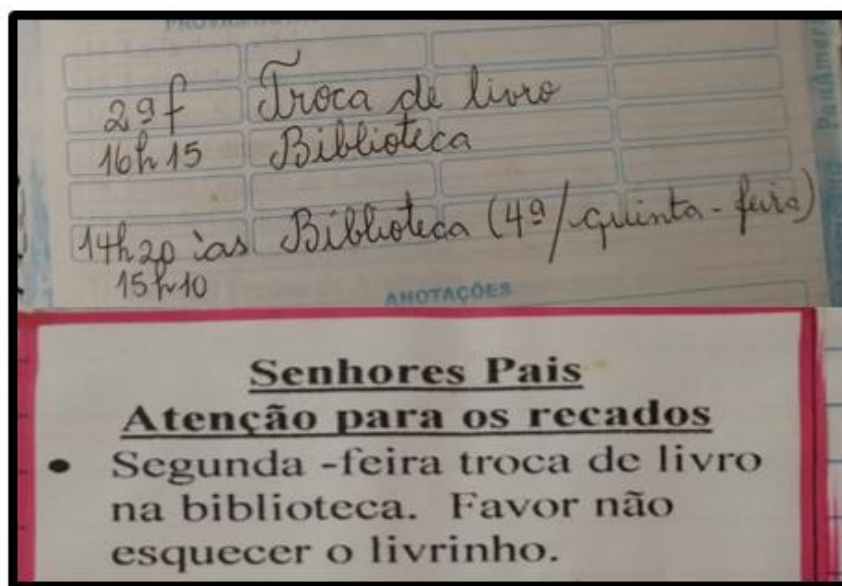 2ªf Troca de livro
16h15 Biblioteca
14h20 às Biblioteca (4ª/quinta-feira)
15h10
ANOTAÇÕES
Senhores Pais
Atenção para os recados
• Segunda -feira troca de livro
na biblioteca. Favor não
esquecer o livrinho.